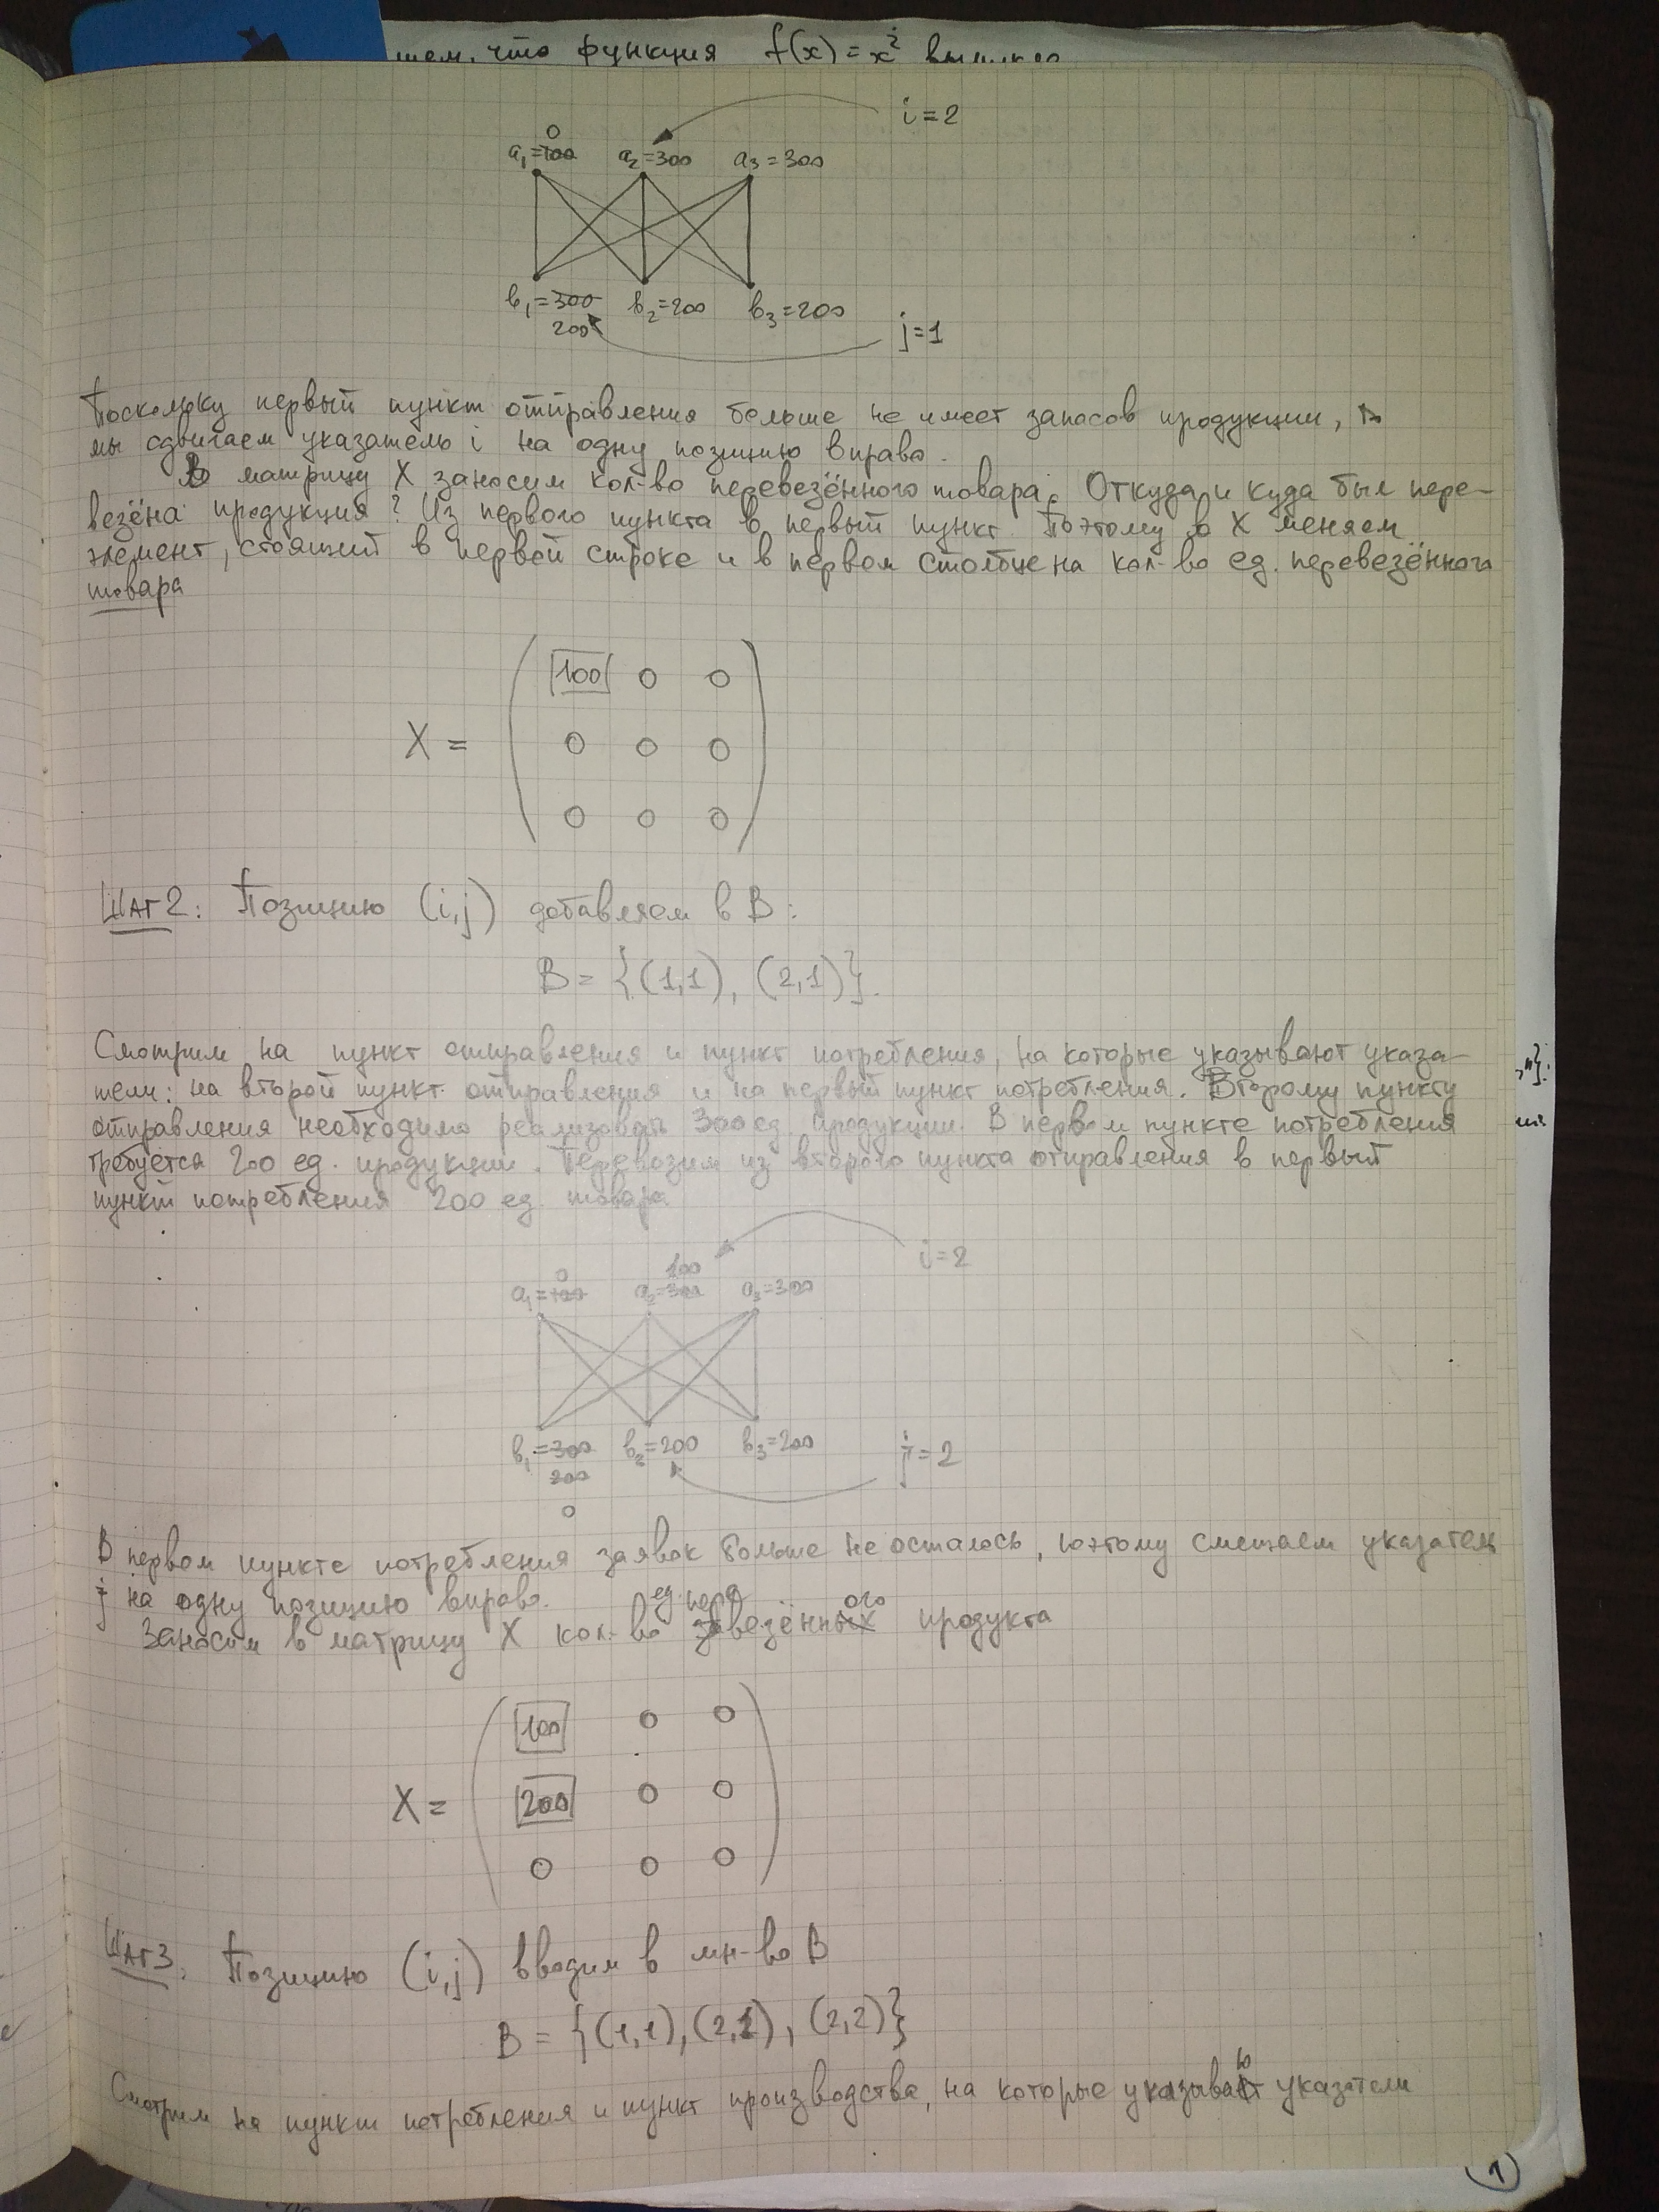 что функция f(x) = x²
i=2
0
a₁=100 a₂=300 a₃=300
b₁=300 b₂=200 b₃=200
200
j=1
Поскольку первый пункт отправления больше не имеет запасов продукции,
мы сдвигаем указатель i на одну позицию вправо.
В матрицу X заносим кол-во перевезённого товара. Откуда и куда был пере-
везёна продукция? Из первого пункта в первый пункт. Поэтому в X меняем
элемент, стоящий в первой строке и в первом столбце на кол-во ед. перевезённого
товара
100 0 0
X = 0 0 0
0 0 0
Шаг 2: Позицию (i,j) добавляем в B:
B = {(1,1), (2,1)}.
Смотрим на пункт отправления и пункт потребления, на которые указывают указа-
тели: на второй пункт отправления и на первый пункт потребления. Второму пункту
отправления необходимо реализовать 300 ед. продукции. В первом пункте потребления
требуется 200 ед. продукции. Перевозим из второго пункта отправления в первый
пункт потребления 200 ед. товара.
i=2
0 100
a₁=100 a₂=300 a₃=300
b₁=300 b₂=200 b₃=200
200
0
j=2
В первом пункте потребления заявок больше не осталось, поэтому смещаем указатель
j на одну позицию вправо.
ед. пере ого
Заносим в матрицу X кол-во завезённых продукта
100 0 0
X = 200 0 0
0 0 0
Шаг 3. Позицию (i,j) вводим в мн-во B
B = {(1,1), (2,1), (2,2)}
ю
Смотрим на пункт потребления и пункт производства, на которые указывают указатели
1